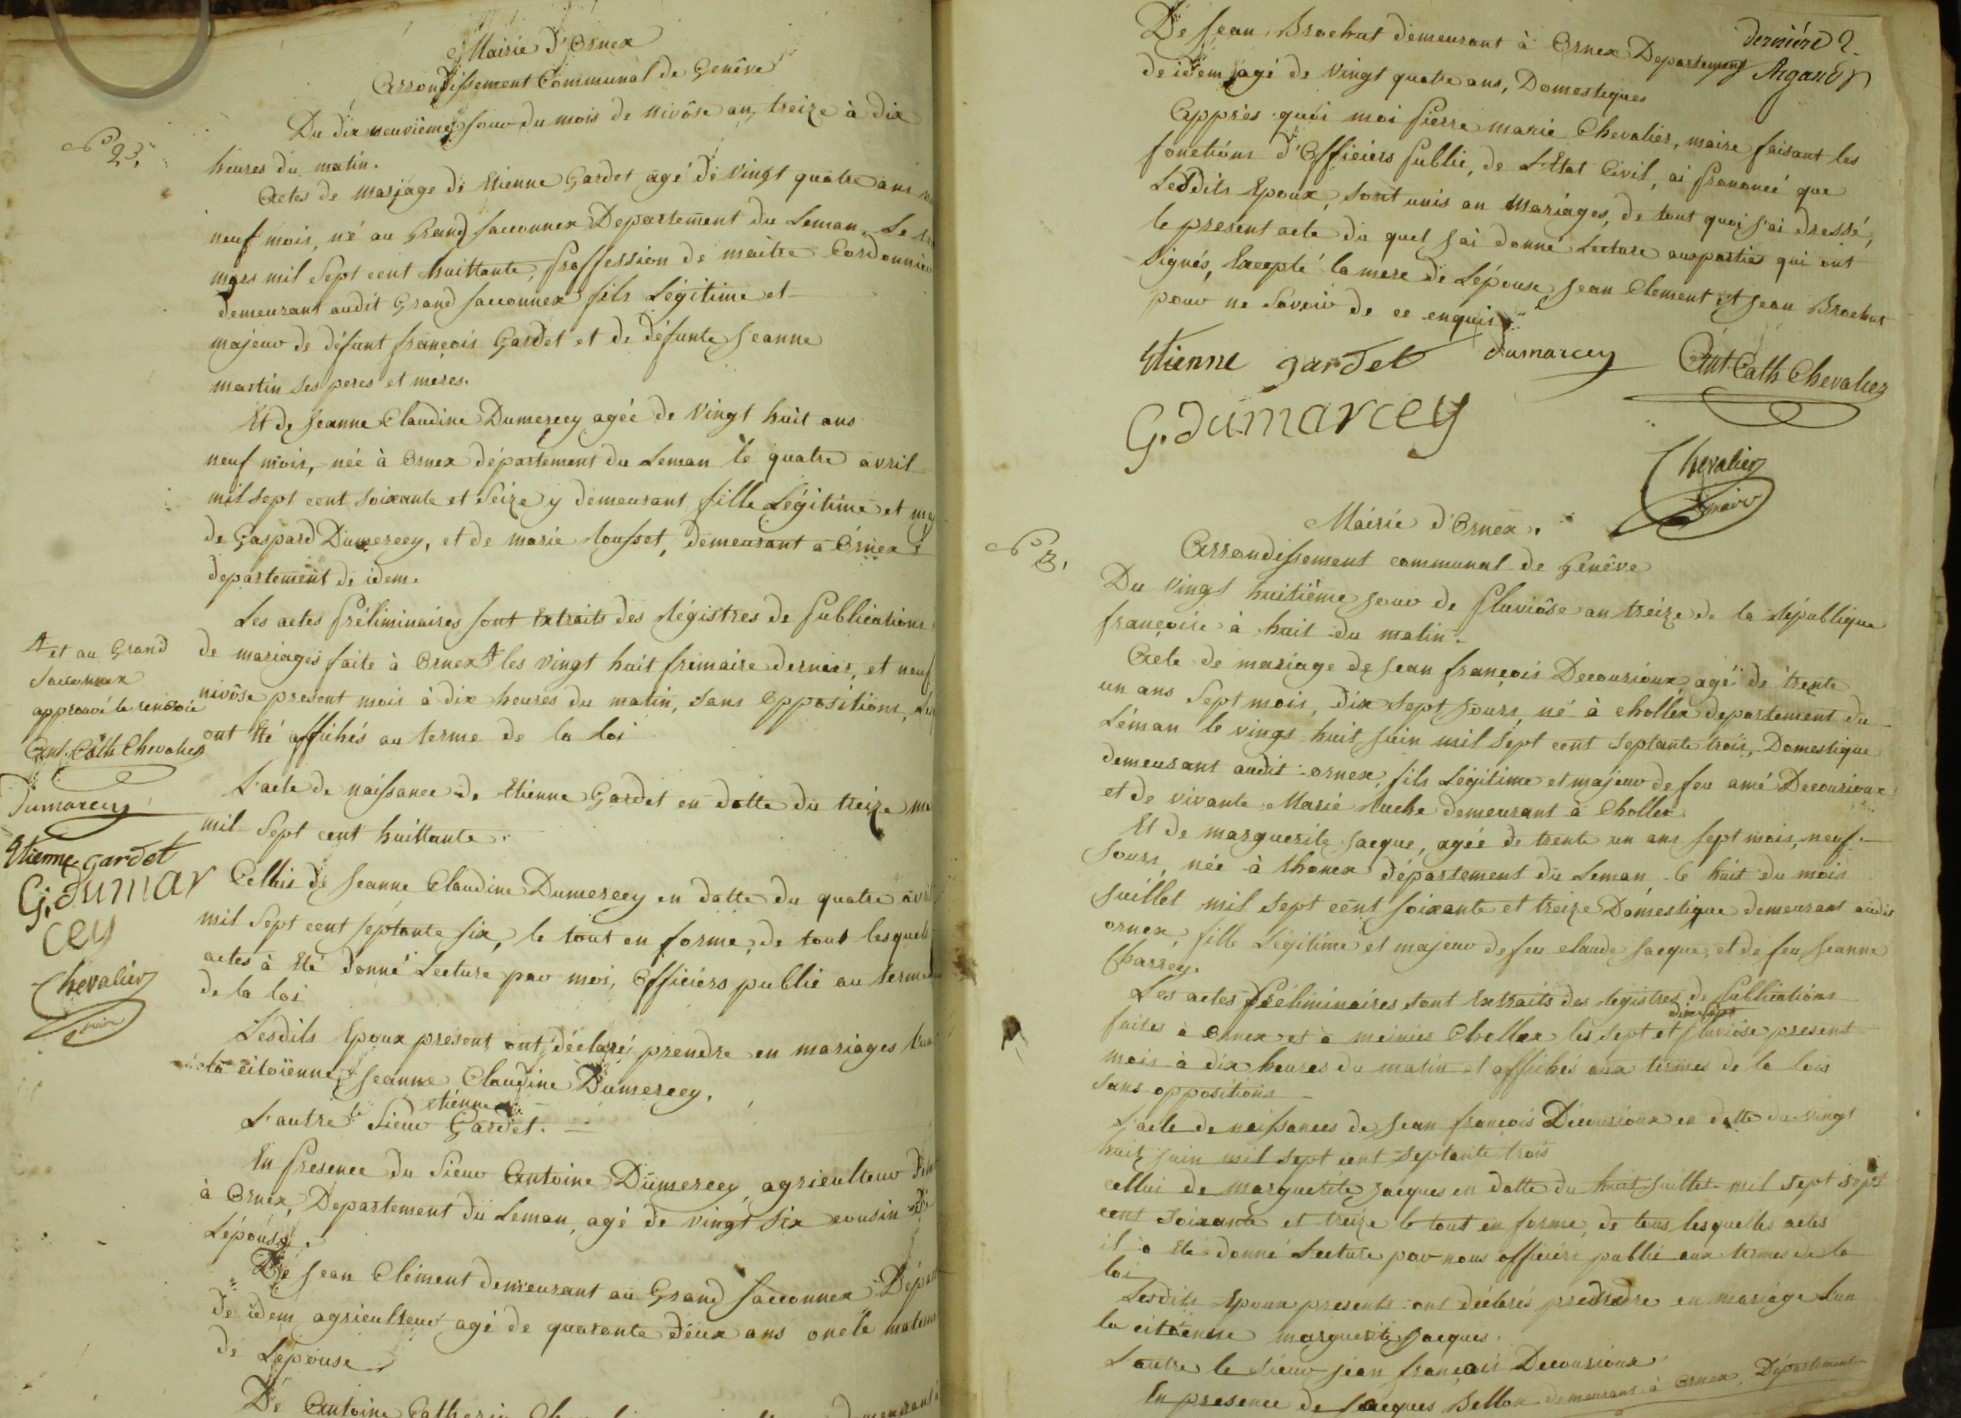 Mairie d'Ornex
Arrondissement Communal de Genêve
N° 2.
Du dix neuvième jour du mois de nivôse an treize à dix
heures du matin.
Actes de mariage de Etienne Gardet agé de vingt quatre ans
neuf mois, né au Grand Sacconnex Departement du Leman, Le
mars mil Sept cent huittante, proffession de maitre Cordonnier
demeurant audit Grand Sacconnex fils Légitime et
majeur de défunt françois Gardet et de défunte Jeanne
martin ses peres et meres.
Et de Jeanne Claudine Dumercey agée de vingt huit ans
neuf mois, née à Ornex département du Leman le quatre avril
mil sept cent soixante et seize y demeurant fille Légitime et
de Gaspard Dumercey, et de marie Rousset, demeurant à Ornex
departement de idem.
Les actes Préliminaires sont Extraits des Régistres de Publications
de mariages faite à Ornex les vingt huit frimaire dernier, et neuf
nivôse present mois à dix heures du matin, sans Oppositions,
ont été affichés au terme de la loi
et au Grand
Sacconnex
approuvé le renvoie
Ant. Cath Chevalier
Dumarcey
Etienne gardet
G. Dumar
cey
Chevalier
maire
L'acte de naissance de Etienne Gardet en datte du treize
mil Sept cent huittante.
Celluis de Jeanne Claudine Dumercey en datte du quatre
mil Sept cent septante six, le tout en forme, de tous lesquels
actes à Eté donné Lecture par moi, Officiers public au terme
de la loi
Lesdits Epoux présent ont déclaré prendre en mariages
la citoïenne Jeanne Claudine Dumercey.
etienne
L'autre le Sieur Gardet.
En presence du Sieur Antoine Dumercey, agriculteur
à Ornex, Departement du Leman, agé de vingt six cousin
Lépouse.
De Jean Clément demeurant au Grand Sacconnex
de idem agriculteur agé de quarante deux ans oncle
de Lepouse
De Antoine
De Jean Brochut demeurant à Ornex Departement
de idem agé de vingt quatre ans, Domestiques
derniére 2.
Argand
Apprès quoi moi Pierre marie Chevalier, maire faisant les
fonctions d'Officiers Public, de L'Etat Civil, ai prononcé que
Lesdits Epoux, sont unis en Mariages, de tout quoi j'ai dressé,
le present acte du quel j'ai donné Lecture auxpartie qui ont
Signés, Excepté la mere de Lépouse Jean Clement et Jean Brochut
pour ne Savoir de ce enquis
Etienne gardet Dumarcey Ant Cath Chevalier
G. Dumarcey
Chevalier
maire
Mairie d'Ornex.
N° 3.
Arrondissement communal de Genêve
Du vingt huitième jour de Pluviôse an treize de la République
françoise à huit du matin.
Acte de mariage de Jean françois Decourioux, agé de trente
un ans Sept mois, dix sept jours, né à Chollex departement du
Léman le vingt huit juin mil Sept cent Septante trois, Domestique
demeurant audit ornex, fils Légitime et majeur de feu amé Decourioux
et de vivante Marie demeurant à Chollex
Et de marguerite Jacque, agée de trente un ans Sept mois, neuf
Jours, née à thonex département du Leman le huit du mois
Juillet mil Sept cent Soixante et treize Domestique demeurant audit
ornex, fille Légitime et majeur de feu claude Jacque, et de feu Jeanne
Charrey.
Les actes Préliminaires sont Extraits des régistres de Publications
dix sept
faites à Ornex et à Chollex les sept et pluviôse present
mois à dix heures du matin et affichés aux termes de la lois
sans oppositions
L'acte de naissances de Jean françois Decourioux en datte du vingt
huit juin mil sept cent septante trois
cellui de marguerite Jacques en datte du huit juillet mil sept sept
cent soixante et treize le tout en forme, de tous lesquelles actes
il a été donné Lecture par nous officier public aux termes de la
loi
Lesdits Epoux presents ont déclarés prendre en mariage l'un
la citoienne marguerite Jacques.
L'autre le sieur jean françois Decourioux
En presence de Jacques Bellon demeurant à Ornex, Département